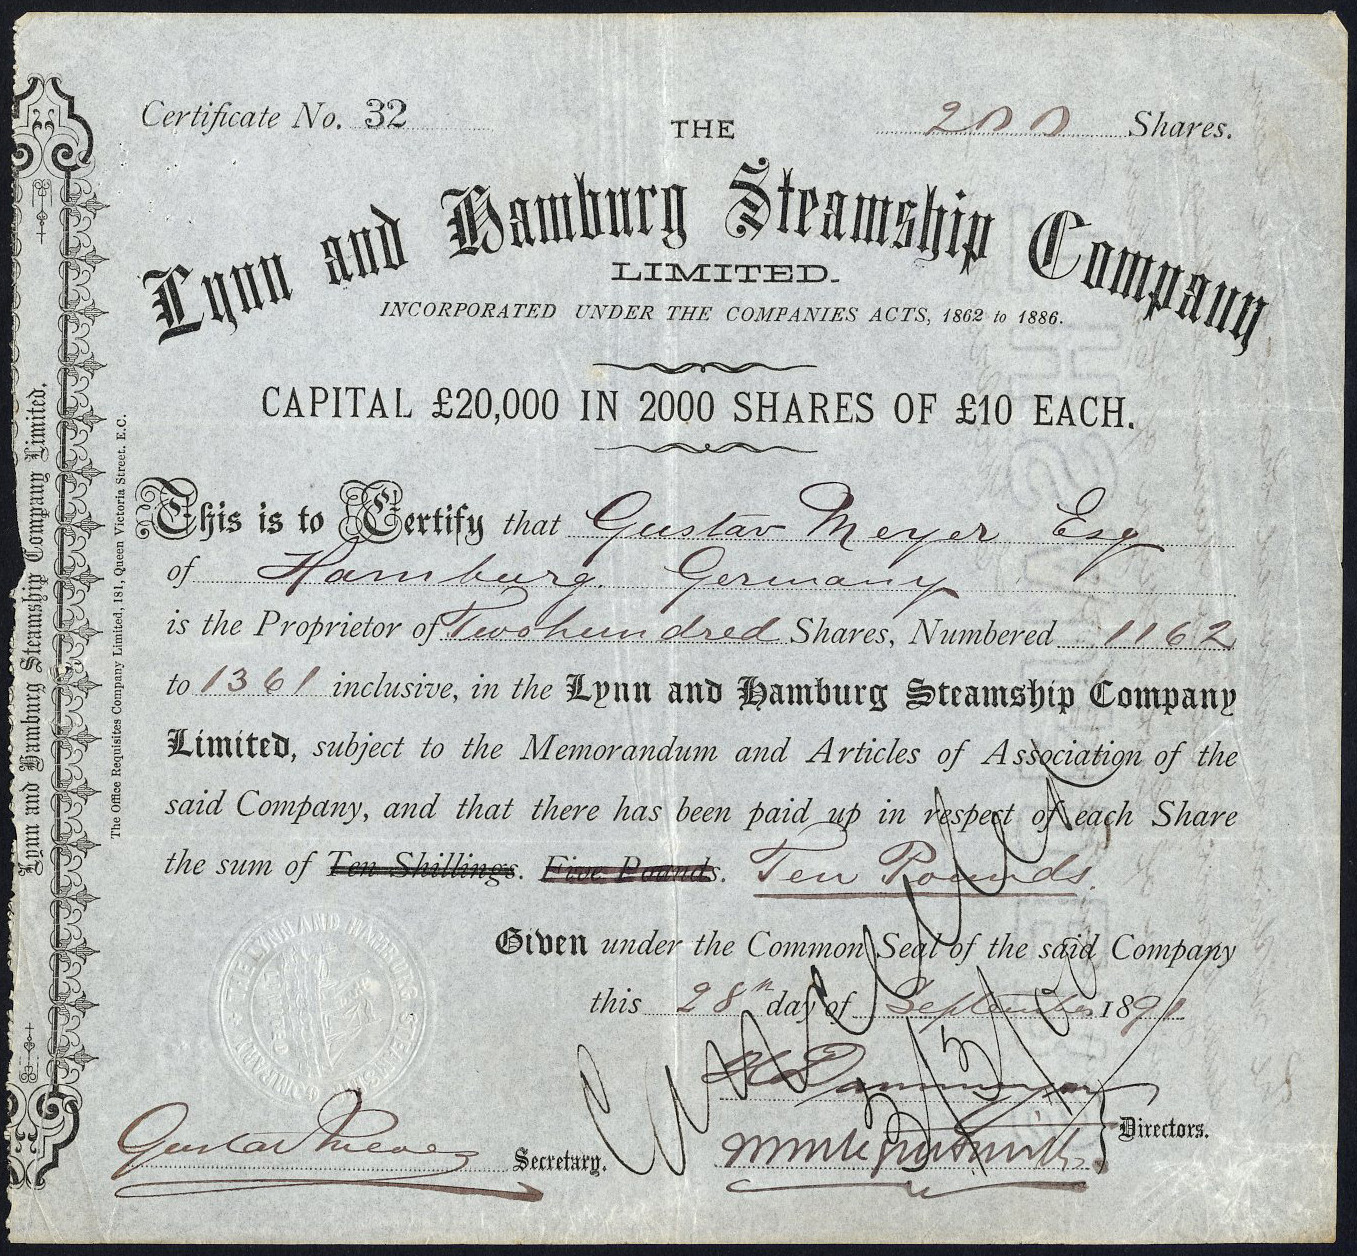 Certificate No. 32
200 Shares.
THE
Lynn and Hamburg Steamship Company
LIMITED.
INCORPORATED UNDER THE COMPANIES ACTS, 1862 to 1886.
CAPITAL £20,000 IN 2000 SHARES OF £10 EACH.
This is to Certify that Gustav Meyer Esq
of Hamburg. Germany
is the Proprietor of Two hundred Shares, Numbered 1162
to 1361 inclusive, in the Lynn and Hamburg Steamship Company
Limited, subject to the Memorandum and Articles of Association of the
said Company, and that there has been paid up in respect of each Share
the sum of Ten Shillings. Five Pounds. Ten Pounds.
Given under the Common Seal of the said Company
this 28th day of September 1891
Cancelled
Directors.
Gustav Meyer Secretary.
THE LYNN AND HAMBURG STEAMSHIP COMPANY
LIMITED
Lynn and Hamburg Steamship Company Limited.
The Office Requisites Company Limited, 181, Queen Victoria Street. E.C.